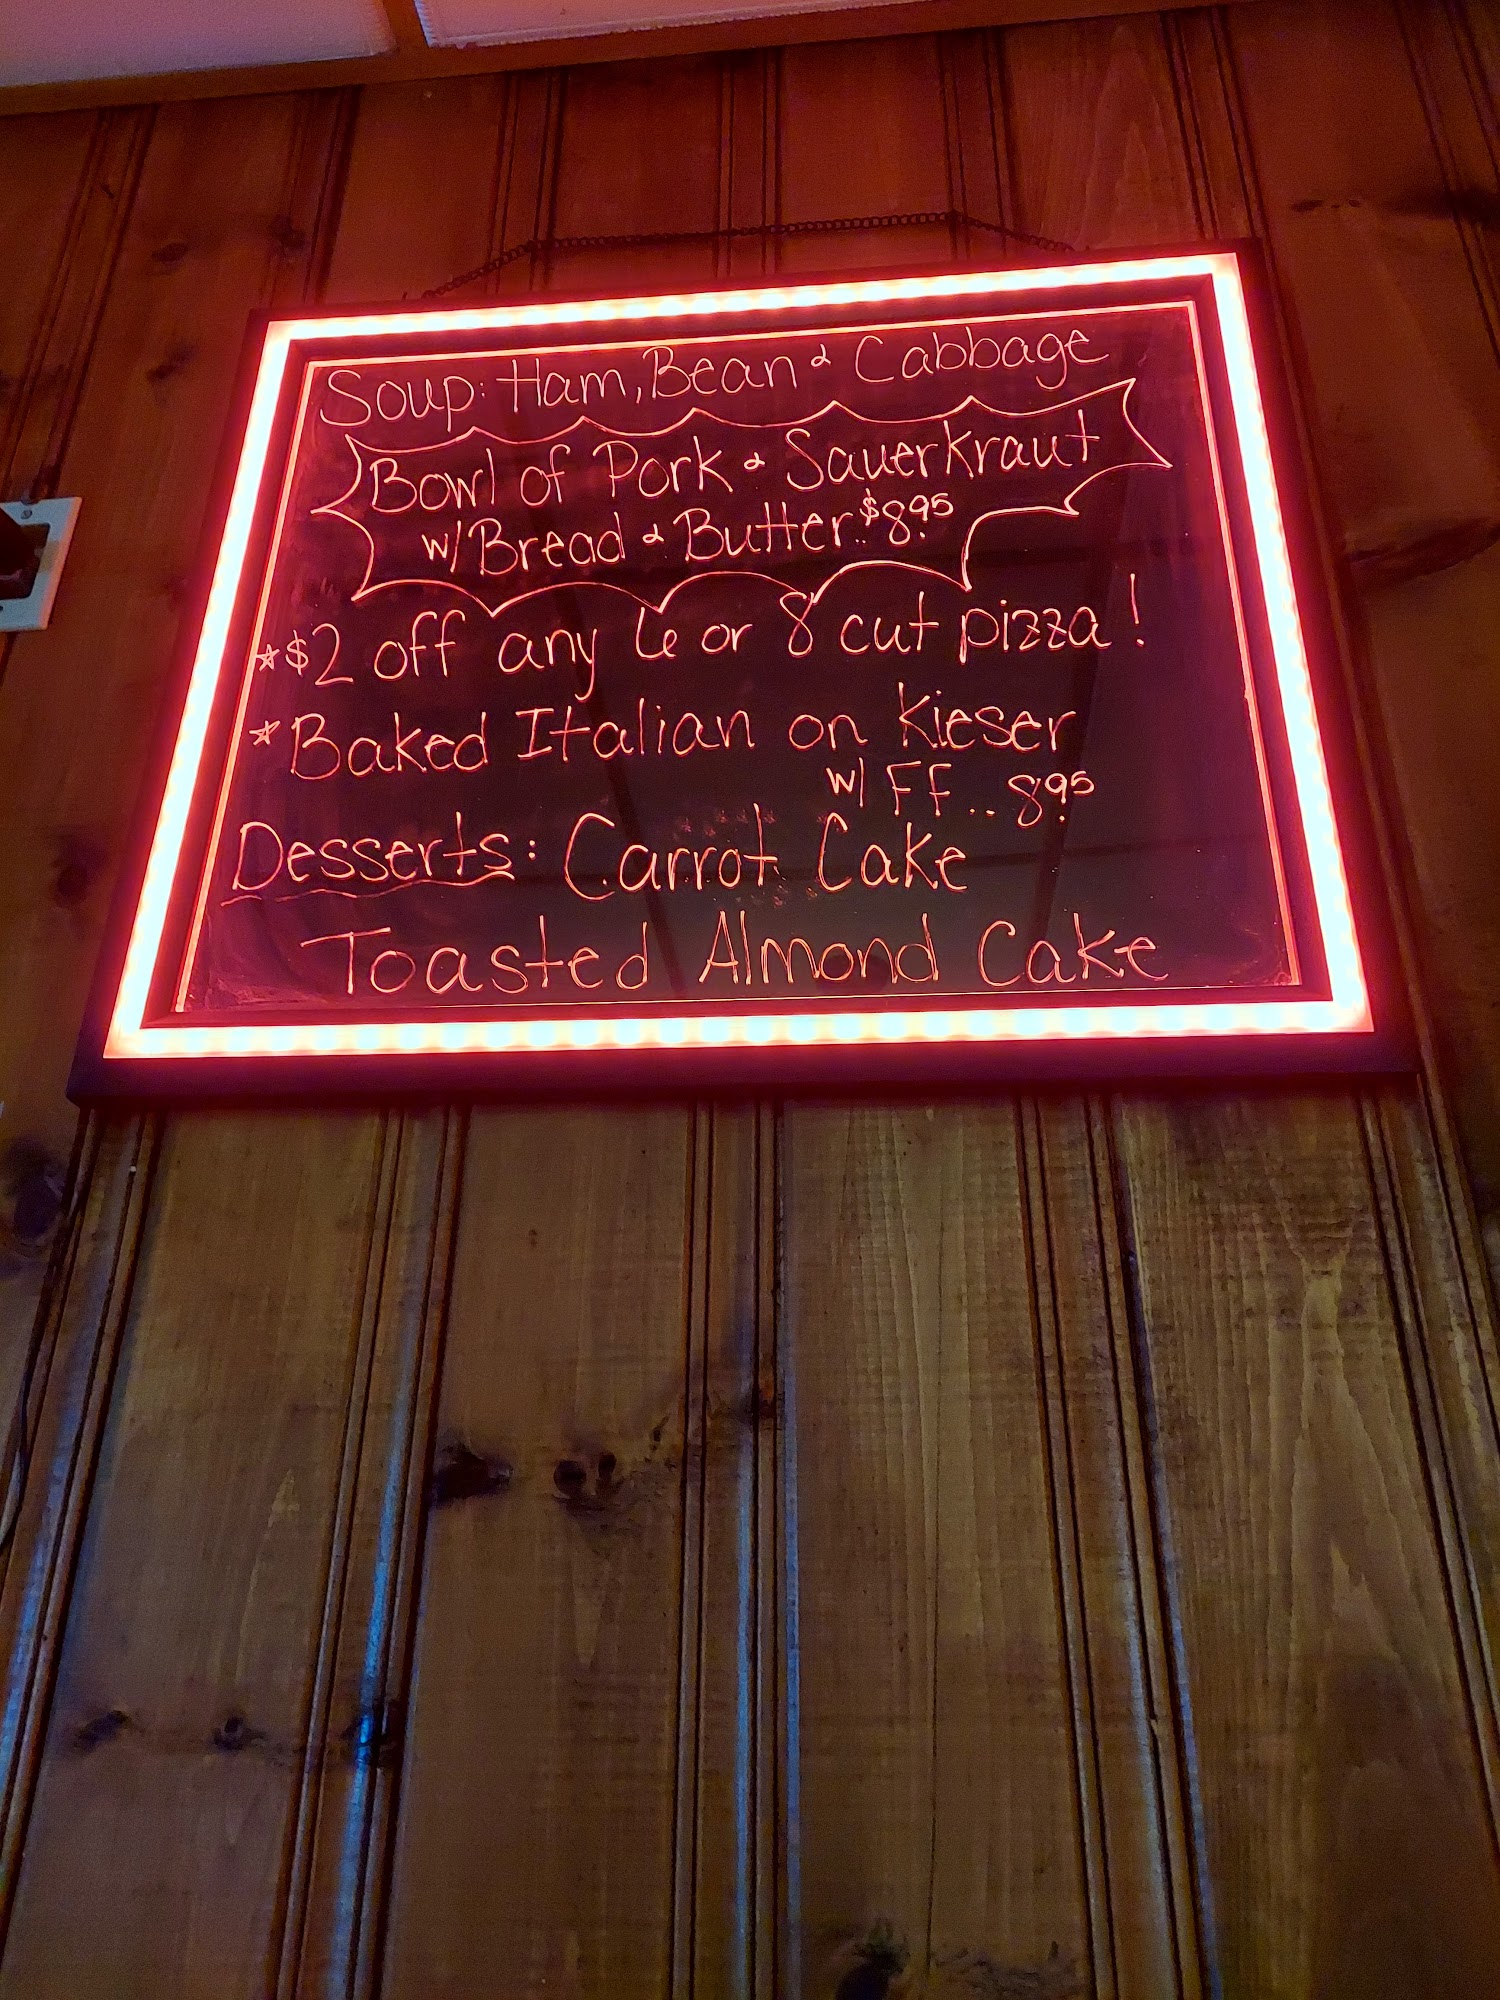 Soup: Ham, Bean & Cabbage
Bowl of Pork & Sauerkraut
w/ Bread & Butter..$8.95
*$2 off any 6 or 8 cut pizza!
*Baked Italian on Kieser
w/ FF.. 8.95
Desserts: Carrot Cake
Toasted Almond Cake